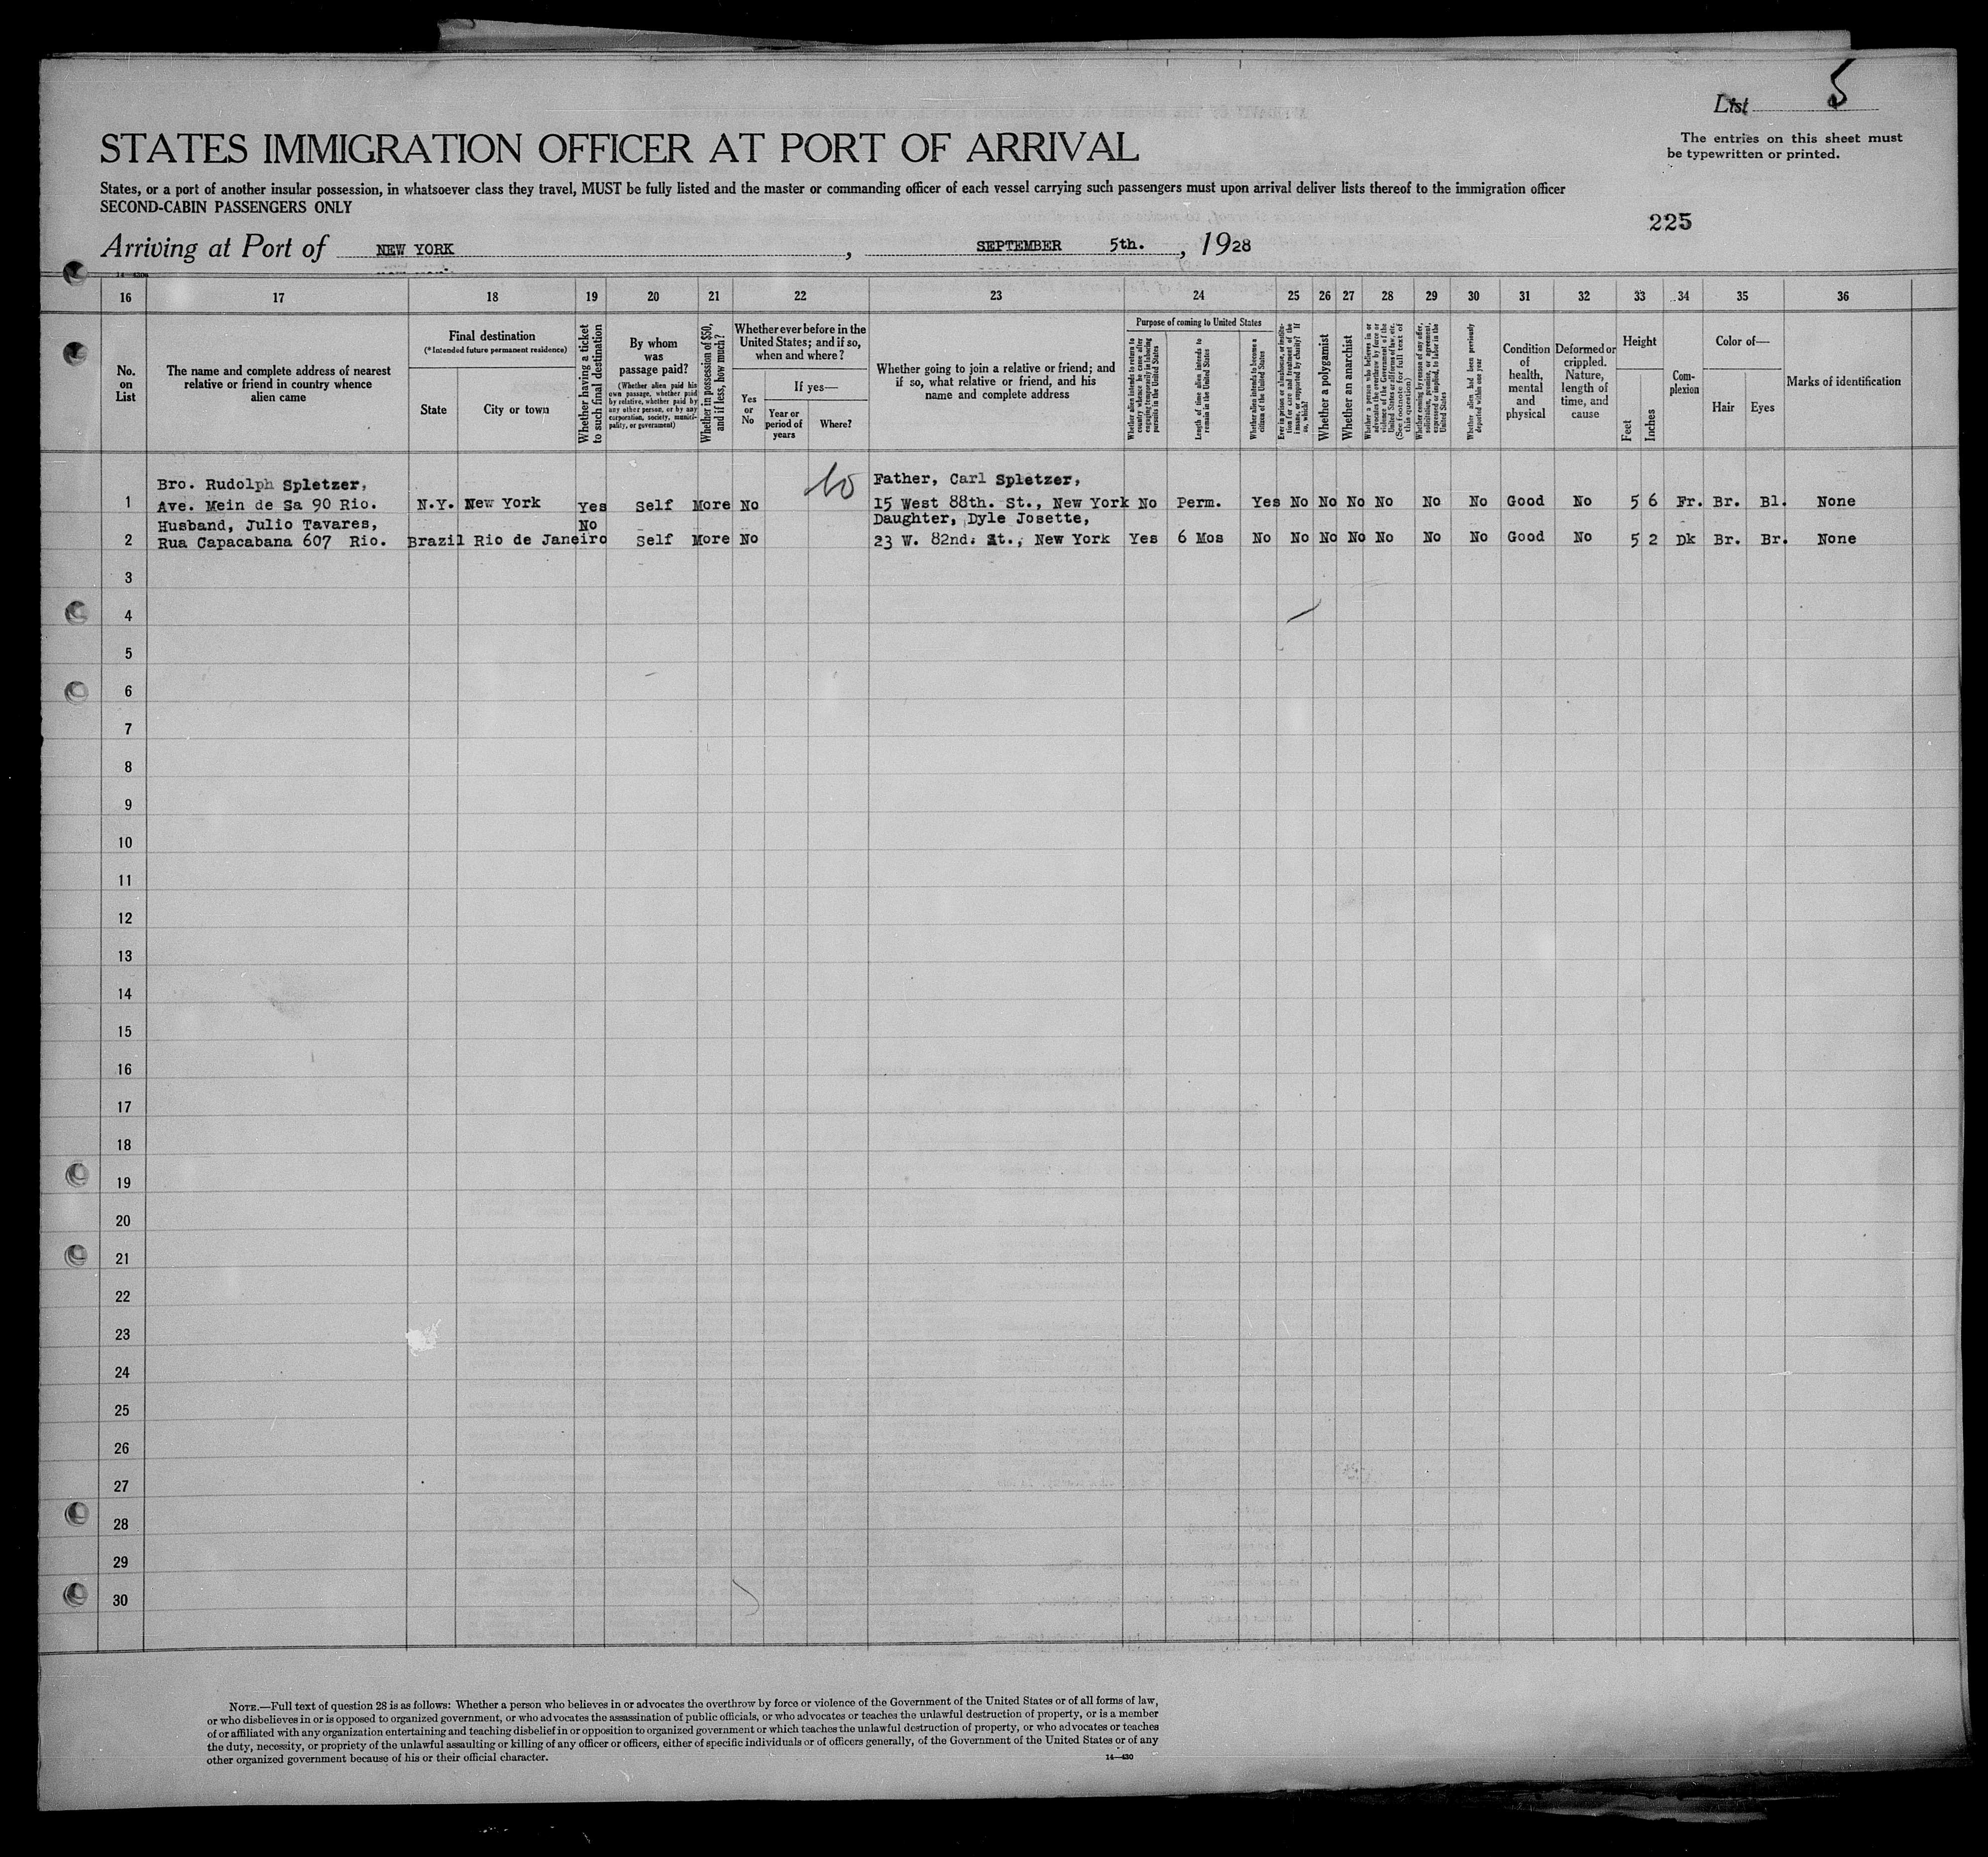 List 5
The entries on this sheet must
be typewritten or printed.
STATES IMMIGRATION OFFICER AT PORT OF ARRIVAL
States, or a port of another insular possession, in whatsoever class they travel, MUST be fully listed and the master or commanding officer of each vessel carrying such passengers must upon arrival deliver lists thereof to the immigration officer
SECOND-CABIN PASSENGERS ONLY
225
Arriving at Port of NEW YORK, SEPTEMBER 5th., 1928
16 17 18 19 20 21 22 23 24 25 26 27 28 29 30 31 32 33 34 35 36
No.
on
List
The name and complete address of nearest
relative or friend in country whence
alien came
Final destination
(*Intended future permanent residence)
State
City or town
Whether having a ticket
to such final destination
By whom
was
passage paid?
(Whether alien paid his
own passage, whether paid
by relative, whether paid by
any other person, or by any
corporation, society, munici-
pality, or government)
Whether in possession of $50,
and if less, how much?
Whether ever before in the
United States; and if so,
when and where?
Yes
or
No
If yes—
Year or
period of
years
Where?
Whether going to join a relative or friend; and
if so, what relative or friend, and his
name and complete address
Purpose of coming to United States
Whether alien intends to return to
country whence he came after
engaging temporarily in laboring
pursuits in the United States
Length of time alien intends to
remain in the United States
Whether alien intends to become a
citizen of the United States
Ever in prison or almshouse, or institu-
tion for care and treatment of the
insane, or supported by charity? If
so, which?
Whether a polygamist
Whether an anarchist
Whether a person who believes in or
advocates the overthrow by force or
violence of the Government of the
United States or all forms of law, etc.
(See footnote for full text of
this question)
Whether coming by reason of any offer,
solicitation, promise, or agreement,
expressed or implied, to labor in the
United States
Whether alien had been previously
deported within one year
Condition
of
health,
mental
and
physical
Deformed or
crippled.
Nature,
length of
time, and
cause
Height
Feet
Inches
Com-
plexion
Color of—
Hair
Eyes
Marks of identification
Bro. Rudolph Spletzer, Father, Carl Spletzer,
1 Ave. Mein de Sa 90 Rio. N.Y. New York Yes Self More No 15 West 88th. St., New York No Perm. Yes No No No No No No Good No 5 6 Fr. Br. Bl. None
Husband, Julio Tavares, No Daughter, Dyle Josette,
2 Rua Capacabana 607 Rio. Brazil Rio de Janeiro Self More No 23 W. 82nd. St., New York Yes 6 Mos No No No No No No No Good No 5 2 Dk Br. Br. None
3
4
5
6
7
8
9
10
11
12
13
14
15
16
17
18
19
20
21
22
23
24
25
26
27
28
29
30
NOTE.—Full text of question 28 is as follows: Whether a person who believes in or advocates the overthrow by force or violence of the Government of the United States or of all forms of law,
or who disbelieves in or is opposed to organized government, or who advocates the assassination of public officials, or who advocates or teaches the unlawful destruction of property, or is a member
of or affiliated with any organization entertaining and teaching disbelief in or opposition to organized government or which teaches the unlawful destruction of property, or who advocates or teaches
the duty, necessity, or propriety of the unlawful assaulting or killing of any officer or officers, either of specific individuals or of officers generally, of the Government of the United States or of any
other organized government because of his or their official character.
14—430